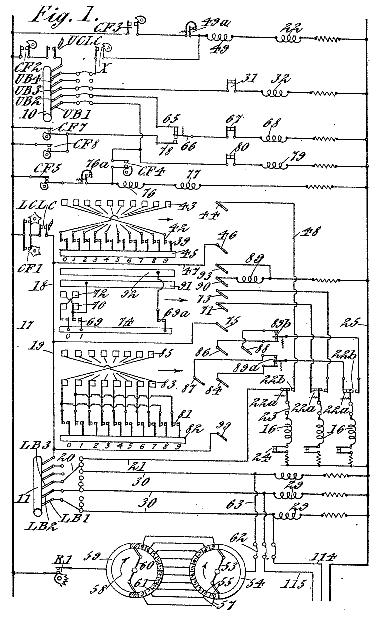 Fig. 1.
CF3
49a
22
UCLC
49
CF2
UB4
UB3
UB2
10
1
UB1
31
32
CF7
CF8
65
66
67
68
78
80
79
CF5
76a
CF4
76
77
LCLC
CF1
43
44
48
42
39
45
0 1 2 3 4 5 6 7 8 9
46
47
89
18
92
91
90
93
73
71
72
70
69
74
69a
0 1
17
75
25
19
85
86
88
89b
89a
22b
22b
83
87
84
22a
22a
22a
23
81
16
16
82
0 1 2 3 4 5 6 7 8 9
99
24
LB3
20
21
11
30
30
LB2
LB1
63
29
29
62
R1
59
58
60
61
53
55
54
57
114
115